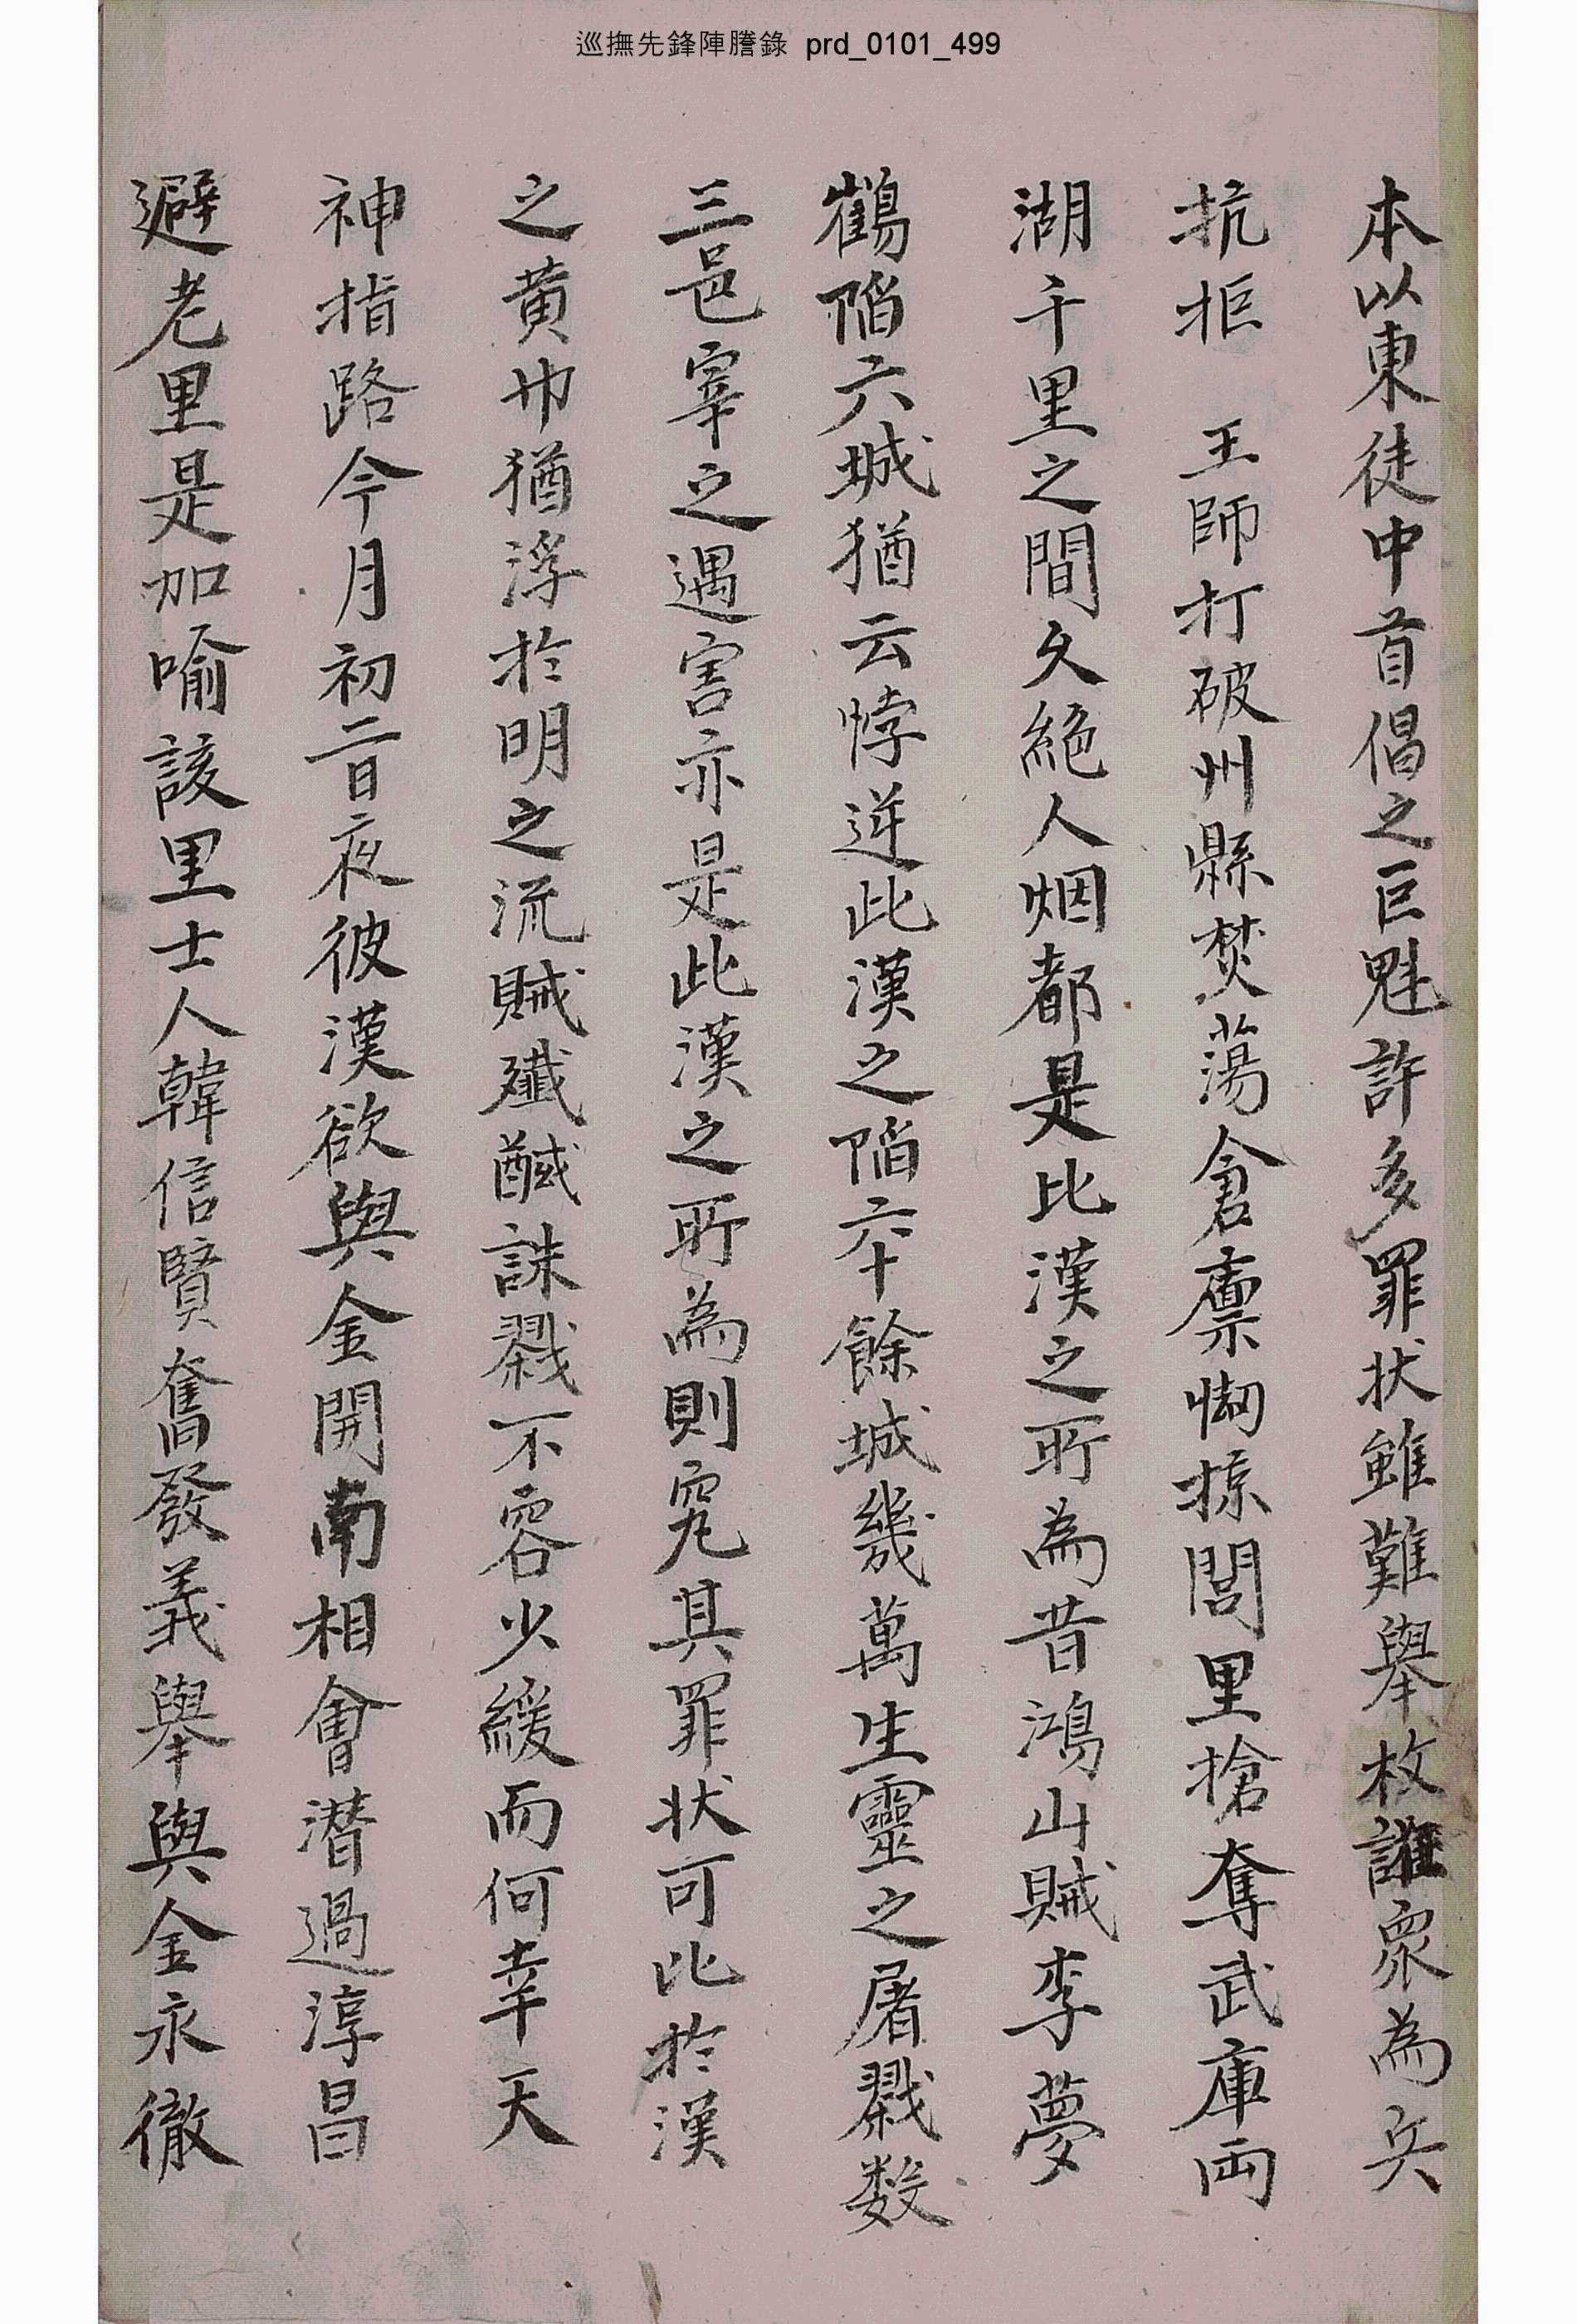 巡撫先鋒陣謄錄 prd_0101_499
本以東徒中首倡之巨魁許多罪状雖難舉枚誰衆為兵
抗拒 王師打破州縣焚蕩倉廪惆掠閭里搶奪武庫両
湖千里之間久絶人烟都是比漢之所為昔鴻山賊李夢
鶴陷六城猶云悖逆此漢之陷六十餘城幾萬生靈之屠戮数
三邑宰之遇害亦是此漢之所為則究其罪状可比於漢
之黄巾猶浮於明之流賊殲馘誅戮不容少緩而何幸天
神指路今月初二日夜彼漢欲與金開南相會潜過淳昌
避老里是加喻該里士人韓信賢奮發義舉與金永徹